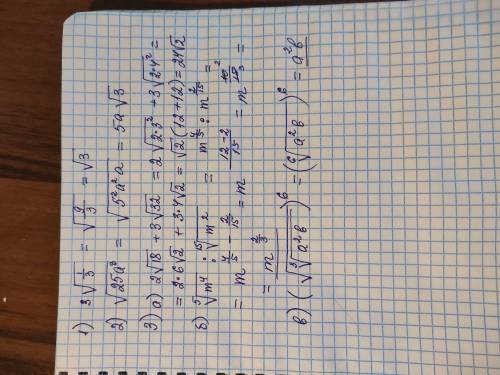 1) 3√(1/3) = √(9/3) = √3
2) √(25a³) = √(5²a²a) = 5a√3
3) а) 2√18 + 3√32 = 2√(2·3²) + 3√(2·4²) =
= 2·6√2 + 3·4√2 = √2(12+12) = 24√2
б) ⁵√(m⁴) : ¹⁵√(m²) = m^(4/5) : m^(2/15) =
= m^(4/5 − 2/15) = m^((12−2)/15) = m^(10/15) =
= m^(2/3)
в) (√(³√(a²b)))⁶ = (⁶√(a²b))⁶ = a²b